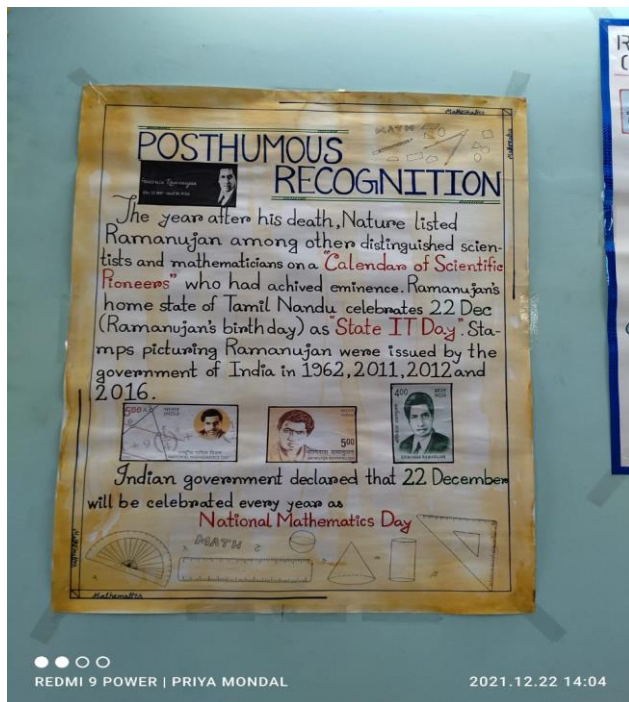 Mathematics
MATH
Mathematics
POSTHUMOUS
RECOGNITION
The year after his death, Nature listed
Ramanujan among other distinguished scien-
tists and mathematicians on a "Calendar of Scientific
Pioneers" who had achived eminence. Ramanujan's
home state of Tamil Nandu celebrates 22 Dec
(Ramanujan's birthday) as "State IT Day". Sta-
mps picturing Ramanujan were issued by the
government of India in 1962, 2011, 2012 and
2016.
500
भारत
INDIA
NATIONAL MATHEMATICS DAY
500
400
भारत
INDIA
Indian government declared that 22 December
will be celebrated every year as
National Mathematics Day
MATH
Mathematics
Mathematics
REDMI 9 POWER | PRIYA MONDAL
2021.12.22 14:04